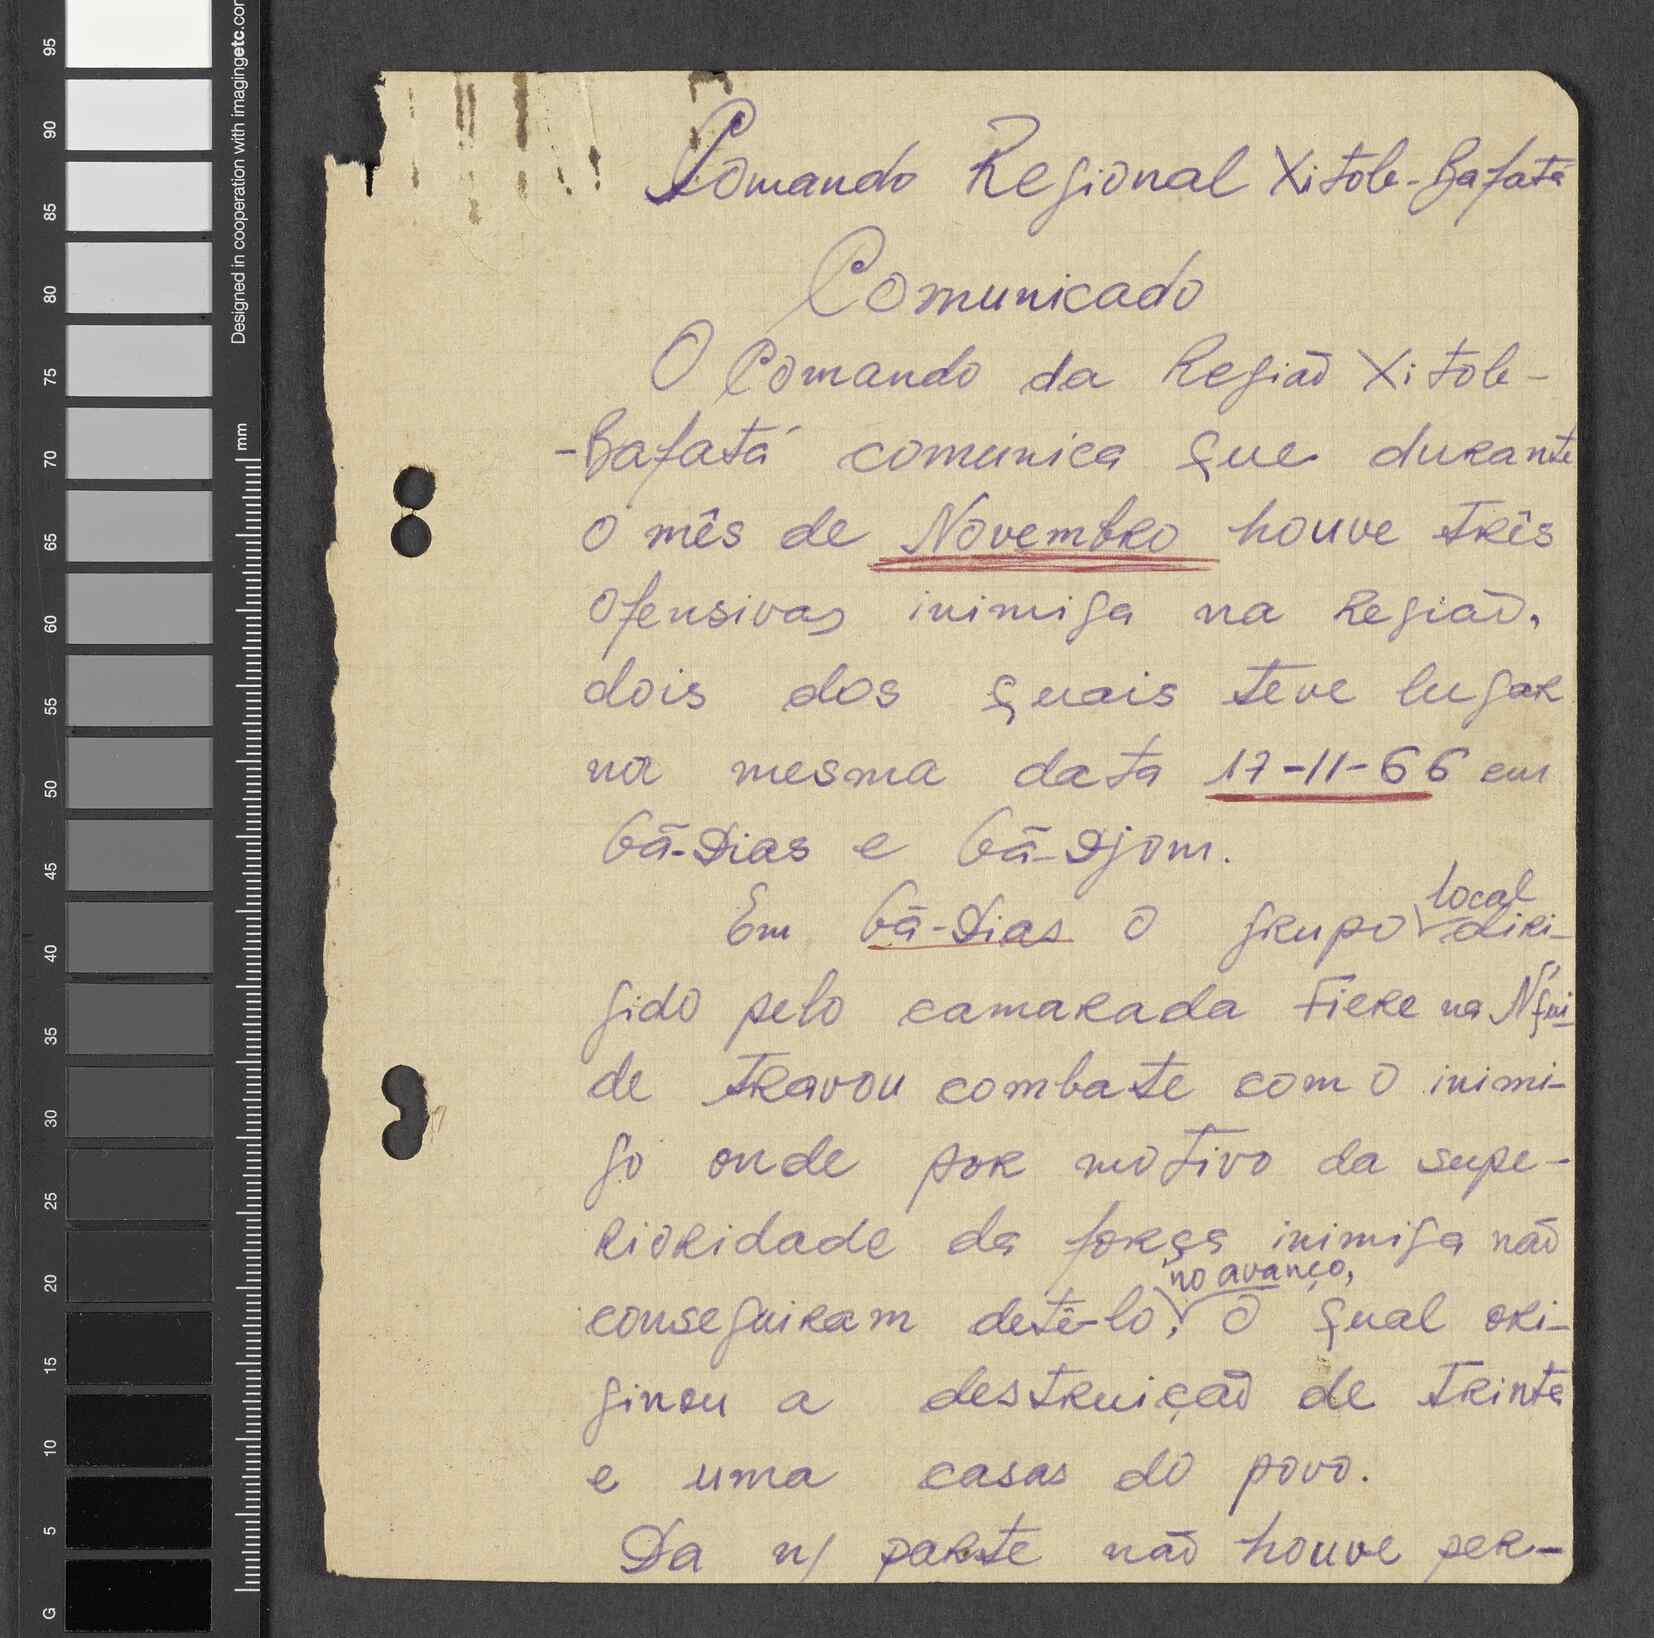 Comando Regional Xitole-Bafatá
Comunicado
O Comando da Região Xitole-
-Bafatá comunica que durante
o mês de Novembro houve três
ofensivas inimiga na Região,
dois dos quais teve lugar
na mesma data 17-11-66 em
Gã-Dias e Gã-Djom.
local
Em Gã-Dias o grupo diri-
gido pelo camarada Fiere na
de travou combate com o inimi-
go onde por motivo da supe-
rioridade da força inimiga não
no avanço,
conseguiram detê-lo, o qual ori-
ginou a destruição de trinta
e uma casas do povo.
Da n/ parte não houve per-
95
90
85
80
75
70
65
60
55
50
45
40
35
30
25
20
15
10
5
G
mm
Designed in cooperation with imagingetc.com